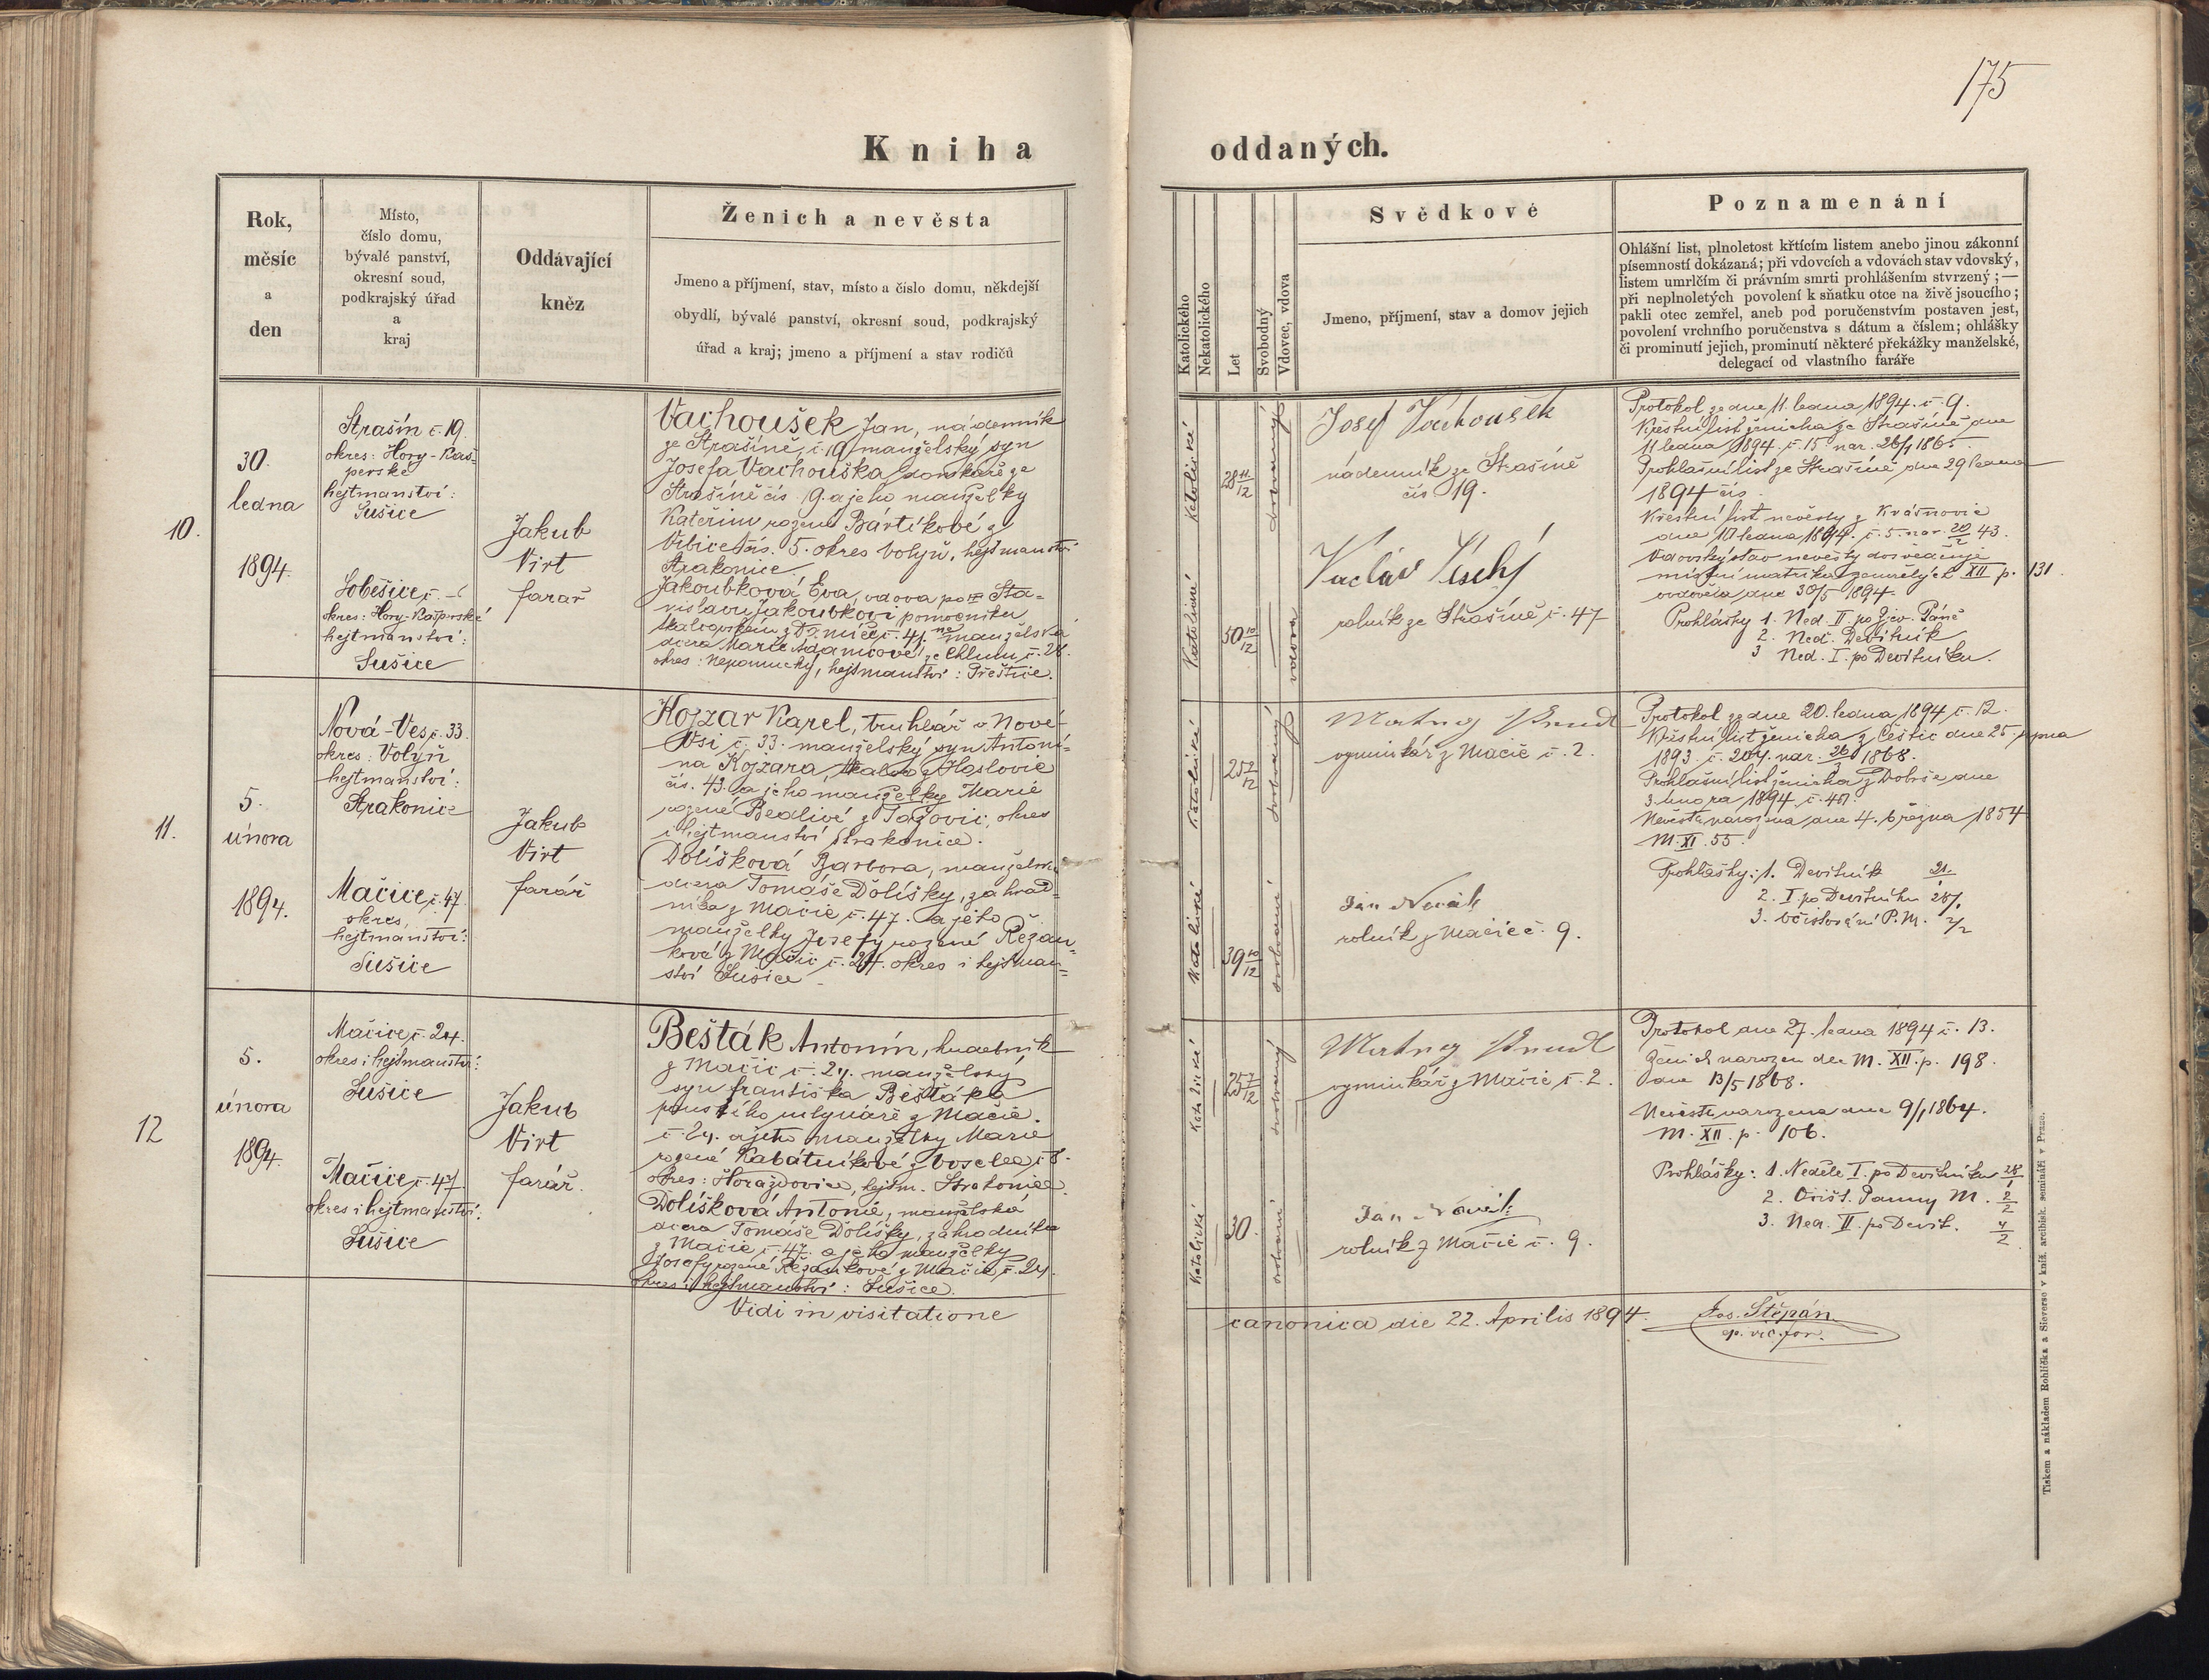 175
Kniha oddaných.
Rok,
měsíc
a
den
Místo,
číslo domu,
bývalé panství,
okresní soud,
podkrajský úřad
a
kraj
Oddávající
kněz
Ženich a nevěsta
Jmeno a příjmení, stav, místo a číslo domu, někdejší
obydlí, bývalé panství, okresní soud, podkrajský
úřad a kraj; jmeno a příjmení a stav rodičů
Katolického
Nekatolického
Let
Svobodný
Vdovec, vdova
Svědkové
Jmeno, příjmení, stav a domov jejich
Poznamenání
Ohlášní list, plnoletost křtícím listem anebo jinou zákonní
písemností dokázaná; při vdovcích a vdovách stav vdovský,
listem umrlčím či právním smrti prohlášením stvrzený; —
při neplnoletých povolení k sňatku otce na živě jsoucího;
pakli otec zemřel, aneb pod poručenstvím postaven jest,
povolení vrchního poručenstva s dátum a číslem; ohlášky
či prominutí jejich, prominutí některé překážky manželské,
delegací od vlastního faráře
10.
30.
ledna
1894.
Strašín č. 19.
okres: Hory-Kaš-
perské
hejtmanství:
Sušice
Soběšice č. –
okres: Hory-Kašperské
hejtmanství:
Sušice
Jakub
Virt
farář
Vachoušek Jan, nádenník
ze Strašíně, č. 19 manželský syn
Josefa Vachouška domkáře ze
Strašíně čís 19. a jeho manželky
Kateřiny rozené Bártíkové z
Vrbice čís. 5. okres Volyň, hejtmanství
Strakonice.
Jakoubková Eva, vdova po Sta-
nislavu Jakoubkovi pomocníku
č. 41. nemanželská
dcera Marie Adamcové ze Chlumu č. 28.
okres: Nepomucký, hejtmanství: Přeštice.
Katolické
28 11/12
svobodný
Katolické
50 10/12
vdova
Josef Vachoušek
nádenník ze Strašíně
čís 19.
Václav Český
rolník ze Strašíně č. 47
Protokol ze dne 11. ledna 1894. č. 9.
Křestní list ženicha ze Strašíně dne
11 ledna 1894. č. 15 nar. 26/1 1865.
Prohlašní list ze Strašíně dne 29 ledna
1894 čís.
Křestní list nevěsty z Kvášňovic
dne 10 ledna 1894. č. 5. nar. 20/2 43.
Vdovský stav nevěsty dosvědčuje
místní matrika zemřelých L XII p. 131.
ovdověla dne 30/5 1894.
Prohlášky 1. Ned. II. po Zjev. Páně
2. Ned. Devítník
3 Ned. I. po Devítníku.
11.
5.
února
1894.
Nová-Ves č. 33.
okres: Volyň
hejtmanství:
Strakonice
Mačice, č. 47.
okres,
hejtmanství:
Sušice
Jakub
Virt
farář
Kojzar Karel, truhlář v Nové-
Vsi č. 33. manželský syn Antoní-
na Kojzara, tkalce z Hoslovic
čís. 43. a jeho manželky Marie
rozené Bedlivé z Tažovic, okres
i hejtmanství Strakonice.
Dolíšková Barbora, manželská
dcera Tomáše Dolíšky, zahrad-
níka z Mačic č. 47. a jeho
manželky Josefy rozené Řezan-
kové z Mačic č. 24. okres i hejtman-
ství Sušice
Katolické
25
svobodný
Katolické
39 10/12
svobodná
výminkář z Mačic č. 2.
Jan Novák
rolník z Mačic č. 9.
Protokol ze dne 20. ledna 1894 č. 12.
Křestní list ženicha z Čestic dne 25. srpna
1893. č. 204. nar. 26/3 1868.
Prohlašní list ženicha z Dobrše dne
3. února 1894 č. 40.
Nevěsta narozena dne 4. března 1854
M. XI. 55.
Prohlášky: 1. Devítník 21.
2. I. po Devítníku 28/1
3. Očisťování P. M. 2/2
12
5.
února
1894.
Mačice č. 24.
okres i hejtmanství:
Sušice
Mačice č. 47.
okres i hejtmanství:
Sušice
Jakub
Virt
farář.
Bešták Antonín, hudebník
z Mačic č. 24. manželský
syn Františka Beštáka
pouštího mlynáře z Mačic
č. 24. a jeho manželky Marie
rozené Kabátníkové z Bosclea č 8.
okres: Horažďovice, hejtm. Strakonice.
Dolíšková Antonie, manželská
dcera Tomáše Dolíšky, zahradníka
z Mačic č. 47. a jeho manželky
Josefy rozené Řezankové z Mačic č. 24.
okres i hejtmanství: Sušice.
Katolické
25
svobodný
Katolické
30.
svobodná
výminkář z Mačic č. 2.
Jan Novák
rolník z Mačic č. 9.
Protokol dne 27. ledna 1894 č. 13.
Ženich narozen dle M. XII. p. 198.
dne 13/5 1868.
Nevěsta narozena dne 9/1 1864.
M. XII. p. 106.
Prohlášky: 1. Neděle I. po Devítníku 28/1
2. Očišť. Panny M. 2/2
3. Ned. II. po Devít. 4/2
Vidi in visitatione canonica die 22. Aprilis 1894. Jos. Štěpán
ep. vic. for.
Tiskem a nákladem Rohlíčka a Sieverse v kníž. arcibisk. semináři v Praze.